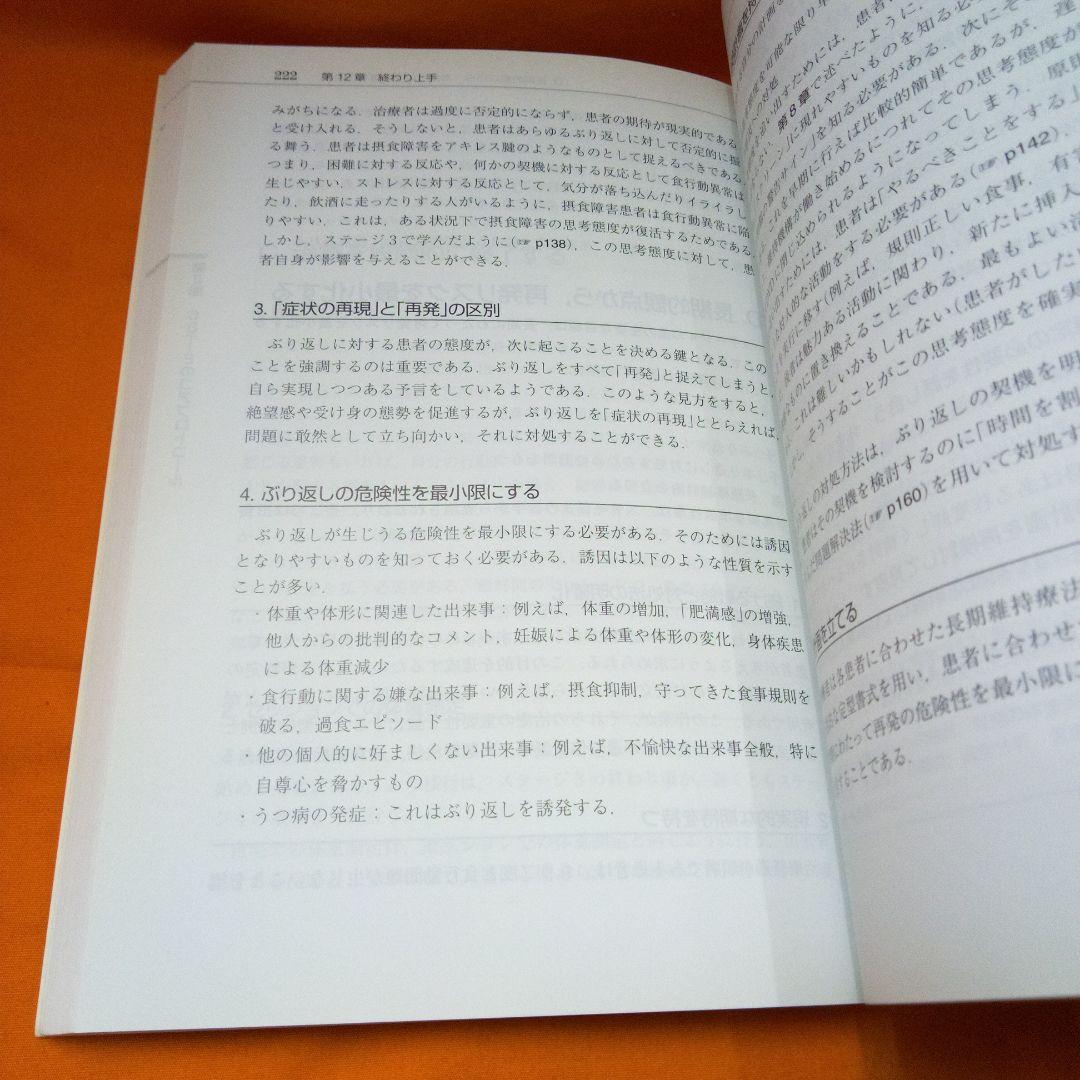 222 第12章 終わり上手
みがちになる．治療者は過度に否定的にならず，患者の期待が現実的である
と受け入れる．そうしないと，患者はあらゆるぶり返しに対して否定的に振
る舞う．患者は摂食障害をアキレス腱のようなものとして捉えるべきである．
つまり，困難に対する反応や，何かの契機に対する反応として食行動異常は
生じやすい．ストレスに対する反応として，気分が落ち込んだりイライラし
たり，飲酒に走ったりする人がいるように，摂食障害患者は食行動異常に陥
りやすい．これは，ある状況下で摂食障害の思考態度が復活するためである．
しかし，ステージ3で学んだように(☞ p138)，この思考態度に対して，患
者自身が影響を与えることができる．
3.「症状の再現」と「再発」の区別
ぶり返しに対する患者の態度が，次に起こることを決める鍵となる．この
ことを強調するのは重要である．ぶり返しをすべて「再発」と捉えてしまうと，
自ら実現しつつある予言をしているようである．このような見方をすると，
絶望感や受け身の態勢を促進するが，ぶり返しを「症状の再現」ととらえれば，
問題に敢然として立ち向かい，それに対処することができる．
4. ぶり返しの危険性を最小限にする
ぶり返しが生じうる危険性を最小限にする必要がある．そのためには誘因
となりやすいものを知っておく必要がある．誘因は以下のような性質を示す
ことが多い．
・体重や体形に関連した出来事：例えば，体重の増加，「肥満感」の増強，
他人からの批判的なコメント，妊娠による体重や体形の変化，身体疾患
による体重減少
・食行動に関する嫌な出来事：例えば，摂食抑制，守ってきた食事規則を
破る，過食エピソード
・他の個人的に好ましくない出来事：例えば，不愉快な出来事全般，特に
自尊心を脅かすもの
・うつ病の発症：これはぶり返しを誘発する．
を可能な限り早
の対処
追い出すためには，患者
第8章で述べたように，
」に現れやすいものを知る必
サイン」を知る必要がある．次にそ
れを早期に行えば比較的簡単であるが，遅
機が働き始めるにつれてその思考態度が
に閉じ込められるようになってしまう．原則
ためには，患者は「やるべきことをする」
対人的な活動をする必要がある(☞ p142)．
実行に移す(例えば，規則正しい食事，有害
は魅力ある活動に関わり，新たに挿入
ものに置き換えることである．最もよい活
これは難しいかもしれない(患者がした
そうすることがこの思考態度を確実
返しの対処方法は，ぶり返しの契機を明
はその契機を検討するのに「時間を割
問題解決法(☞ p160)を用いて対処す
を立てる
は各患者に合わせた長期維持療法
な定型書式を用い，患者に合わせ
にわたって再発の危険性を最小限に
することである．